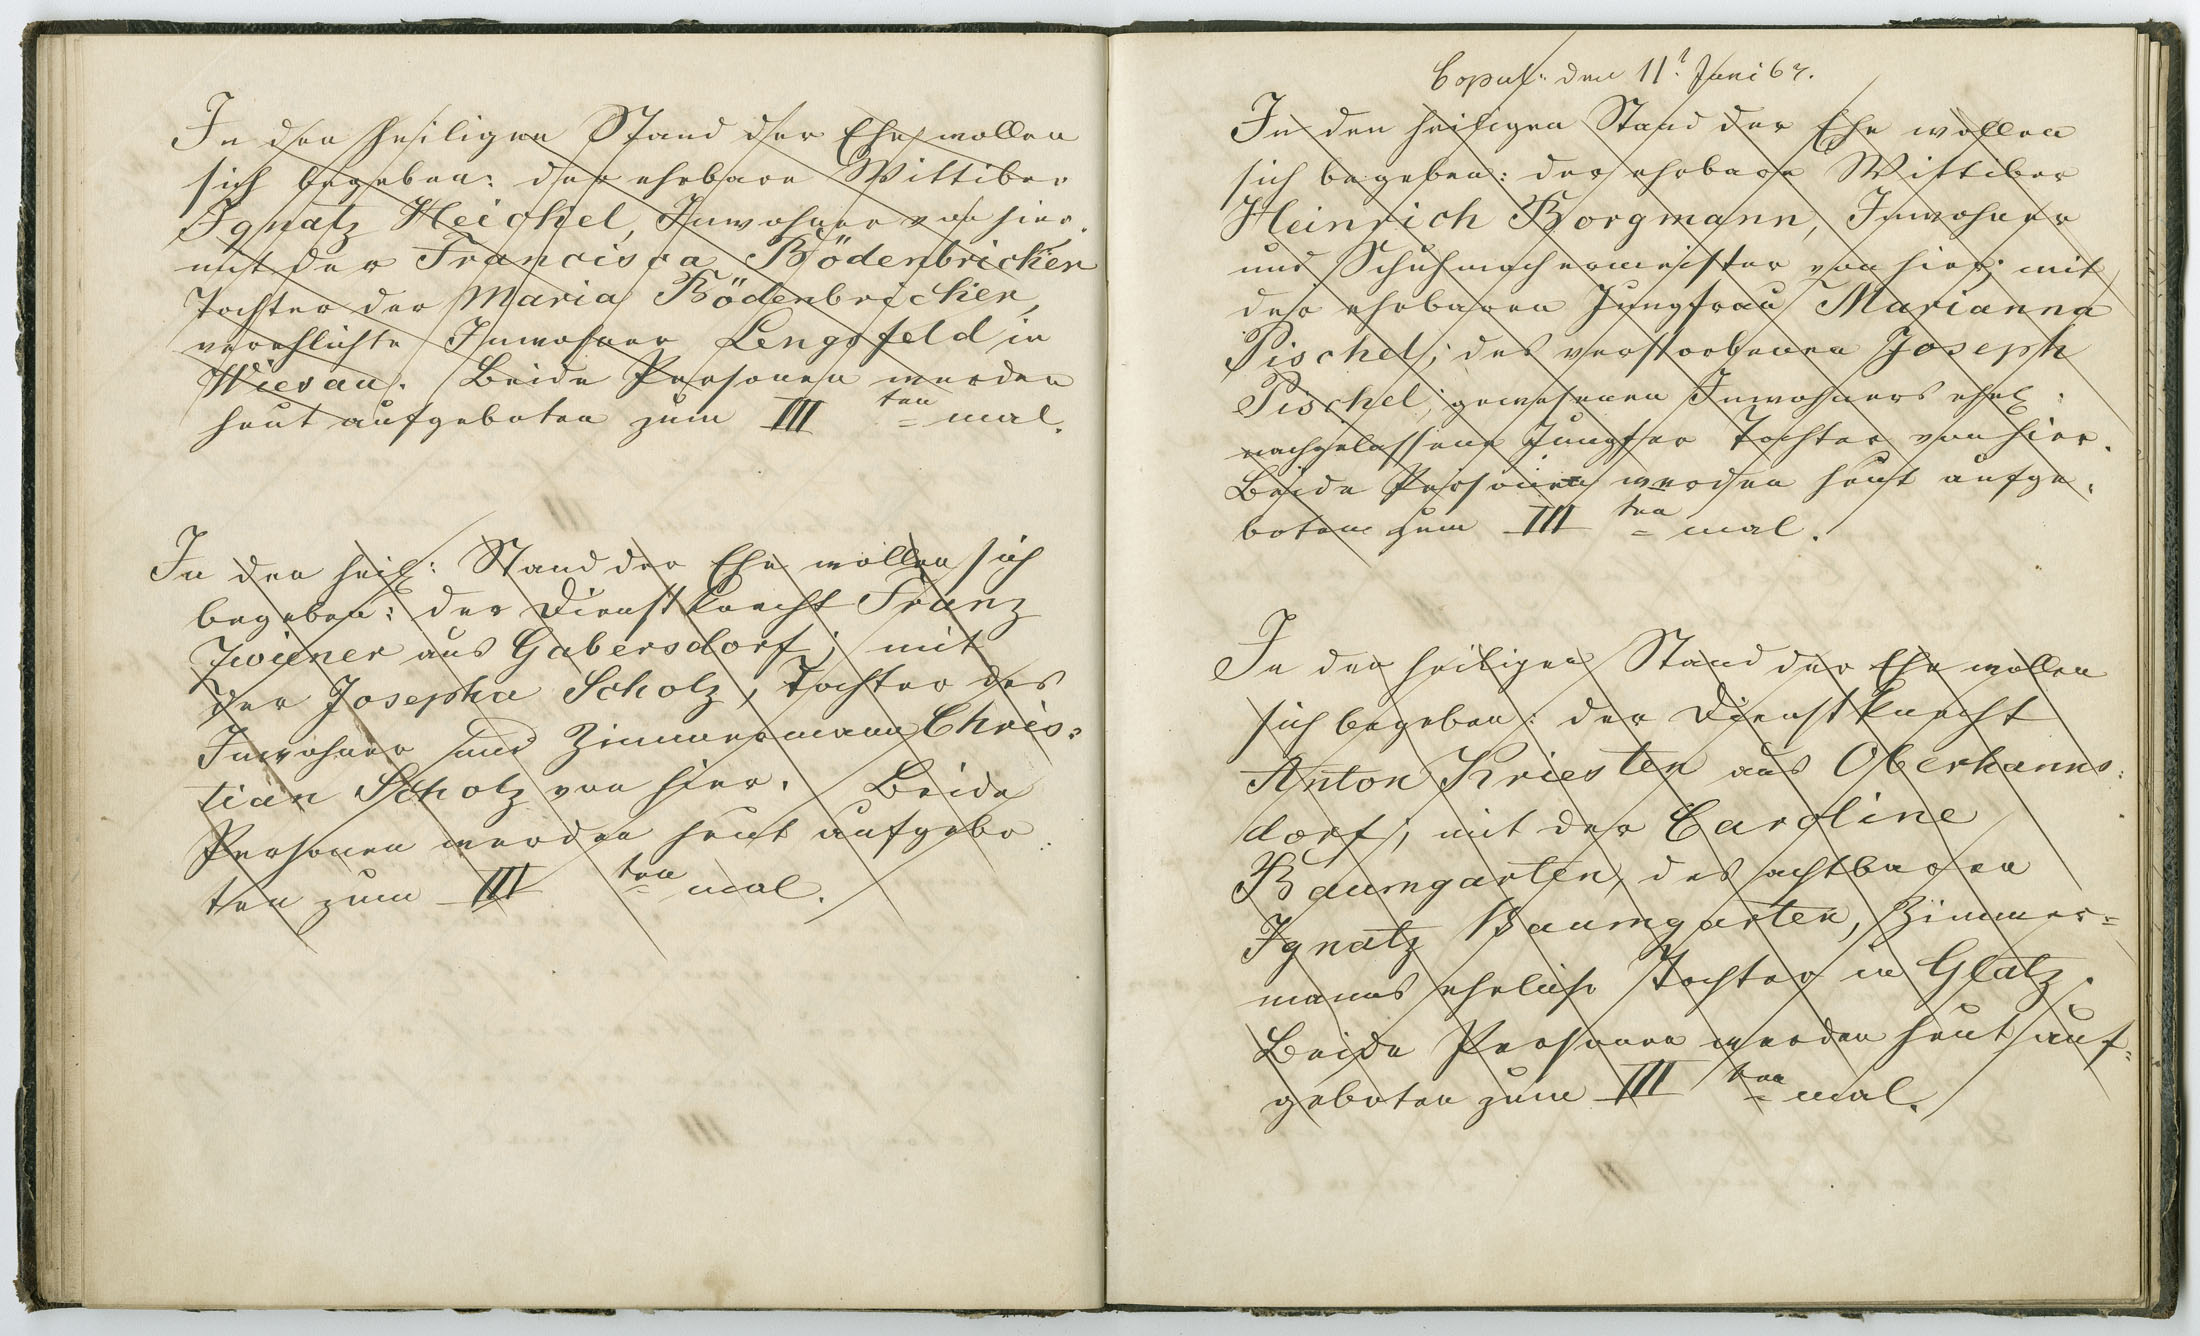 In den heiligen Stand der Ehe wollen
sich begeben: der ehrbare Wittiber
Ignatz Heichel, Inwohner von hier.
mit der Francisca Bödenbricker
Tochter der Maria Bödenbricker,
verehlichte Inwohner Lengsfeld in
Wiesau. Beide Personen werden
heut aufgeboten zum III ten mal.
In den heil: Stand der Ehe wollen sich
begeben: der Dienstknecht Franz
aus Gabersdorf; mit
der Josepha Scholz, Tochter des
Inwohner und Zimmermann Chris=
tian Scholz von hier. Beide
Personen werden heut aufgebo
ten zum III ten mal.
Copul: den 11t Juni 67.
In den heiligen Stand der Ehe wollen
sich begeben: der ehrbare Wittiber
Heinrich Borgmann, Inwohner
und Schuhmachermeister von hier; mit
der ehrbaren Jungfrau Marianna
Pischel; des verstorbenen Joseph
Pischel, gewesenen Inwohners ehel:
nachgelassene Jungfer Tochter von hier.
Beide Personen werden heut aufge=
boten zum III ten mal.
In den heiligen Stand der Ehe wollen
sich begeben: der Dienstknecht
Anton Kriesten aus Oberhanns=
dorf; mit der Caroline
Baumgarten, des achtbaren
Ignatz Baumgarten, Zimmer=
manns eheliche Tochter in Glatz.
Beide Personen werden heut auf=
geboten zum III ten mal.